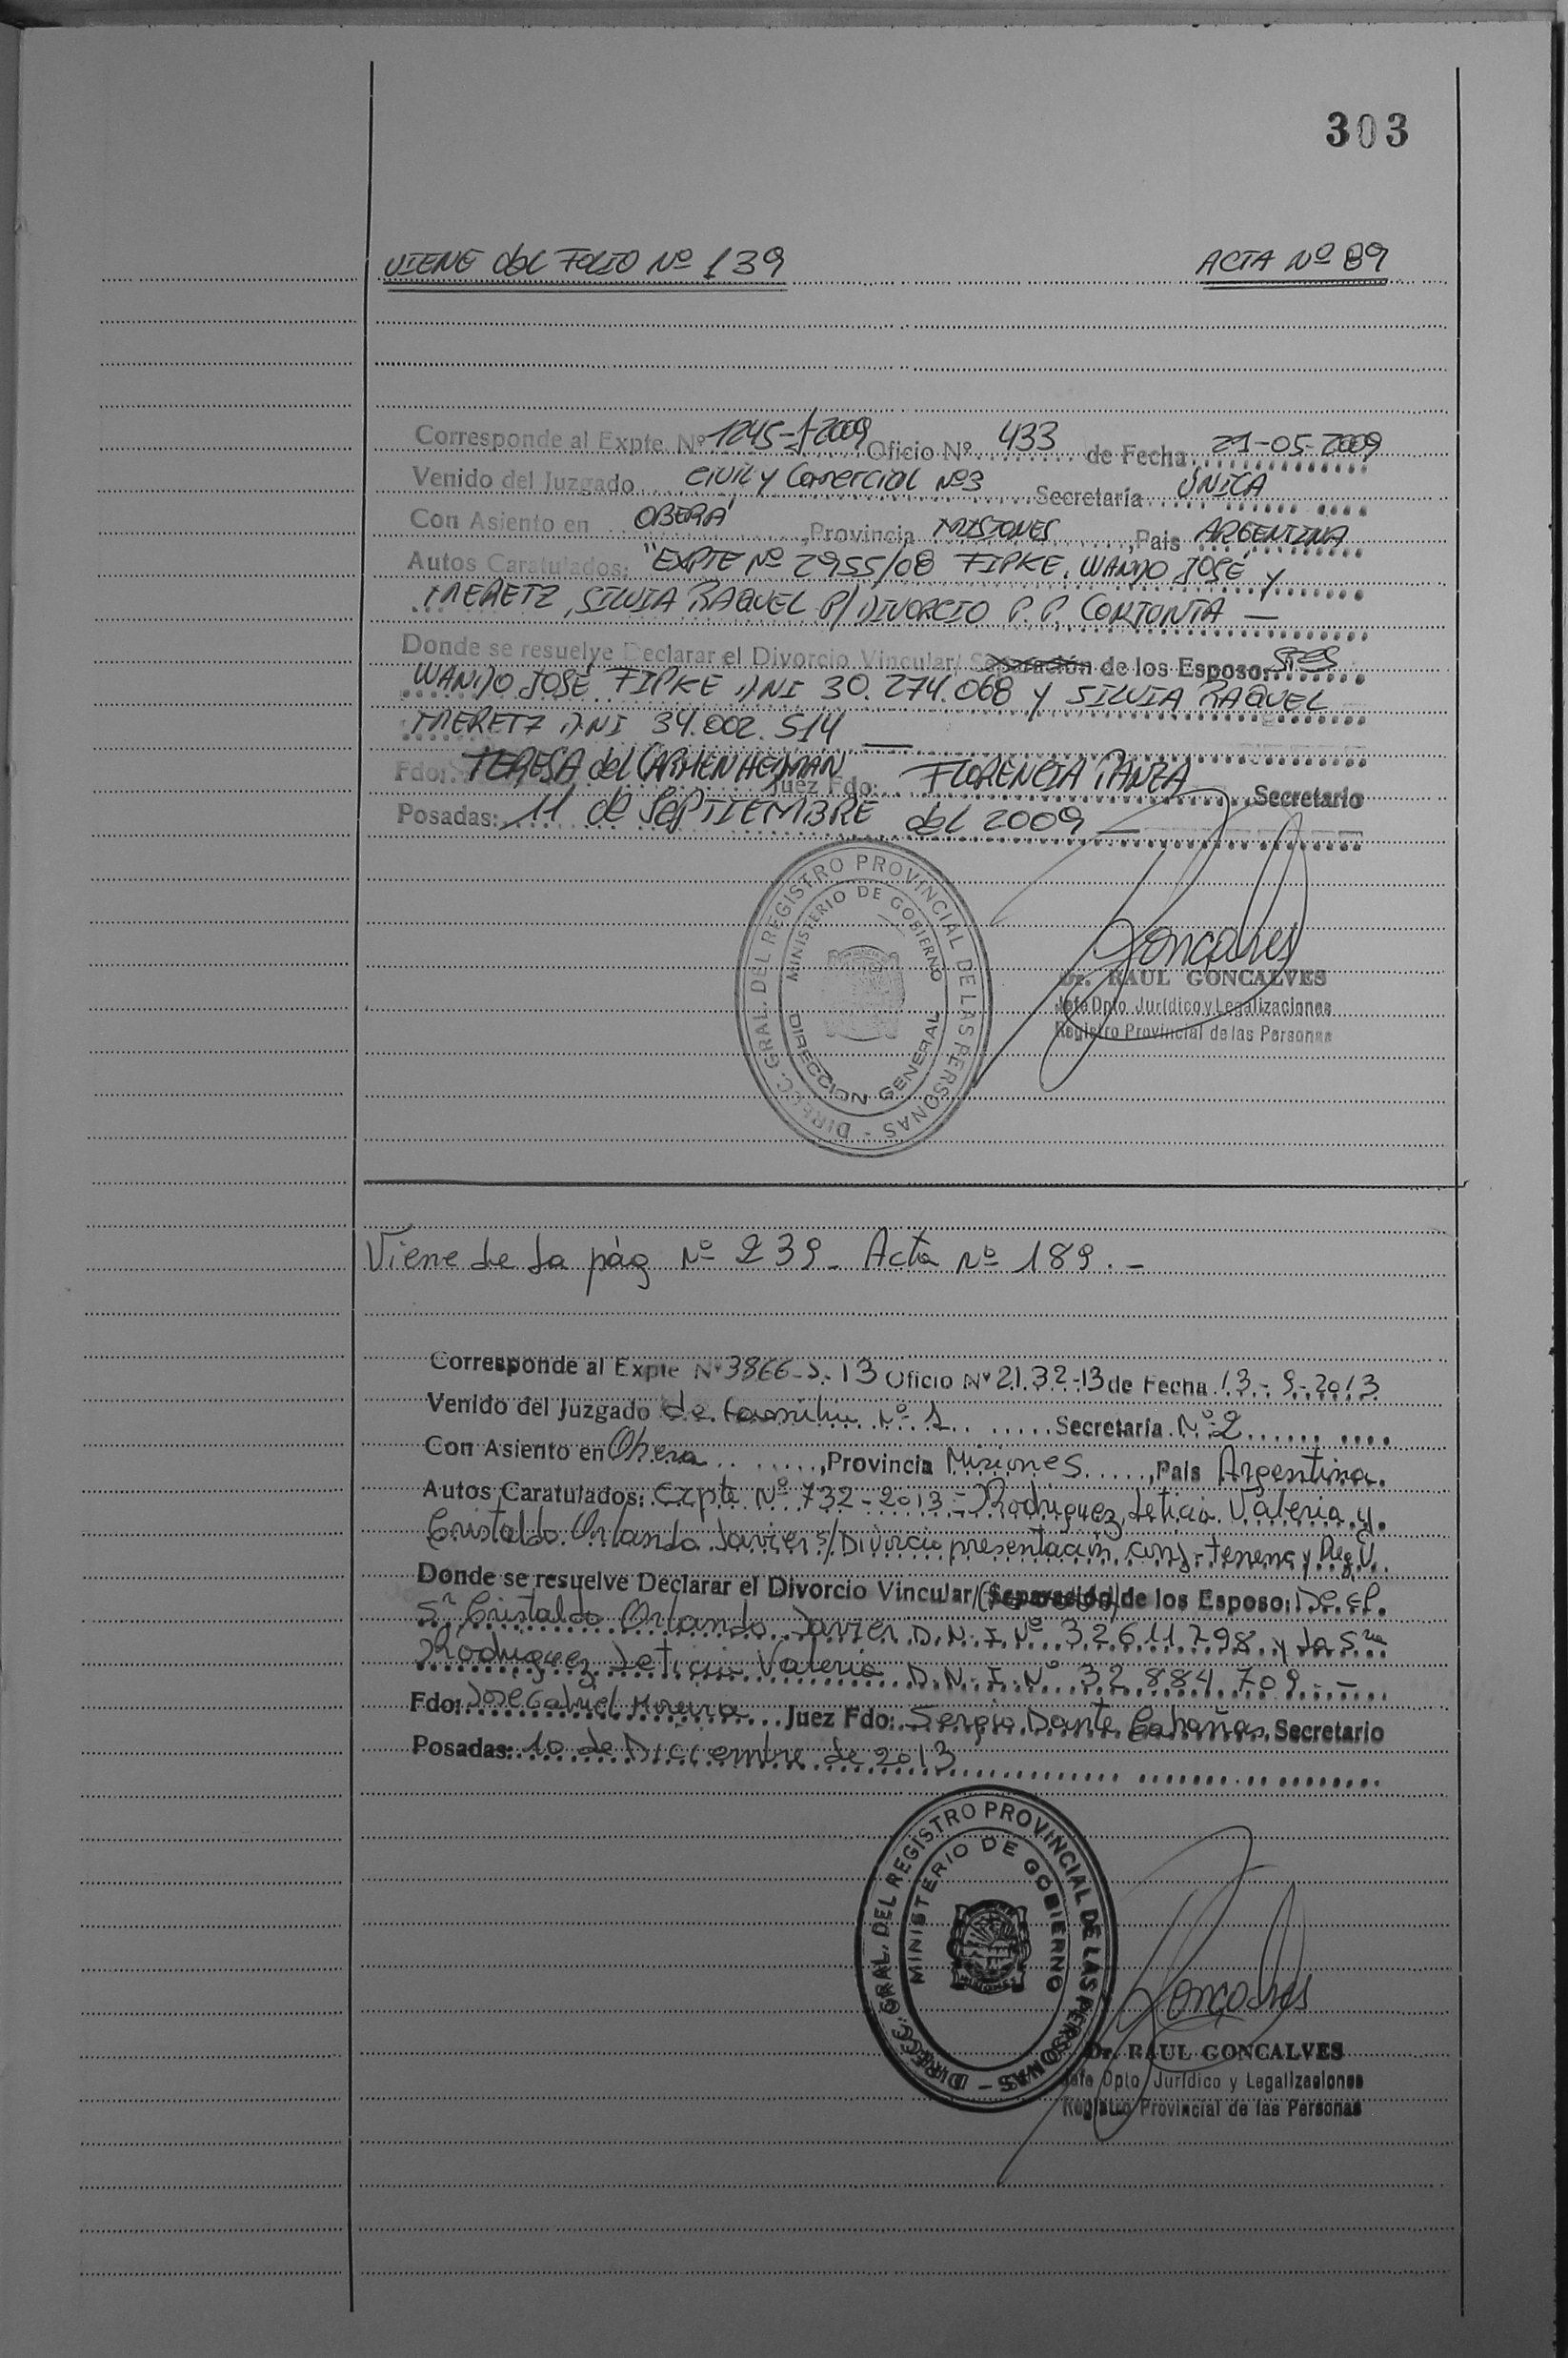 303
VIENE del FOLIO Nº 139 ACTA Nº 89
Corresponde al Expte. Nº 1245-J-2009 Oficio Nº 433 de Fecha 21-05-2009
Venido del Juzgado CIVIL y Comercial Nº3 Secretaría ÚNICA
Con Asiento en OBERÁ, Provincia MISIONES, Pais ARGENTINA
Autos Caratulados: "EXPTE Nº 2955/08 FIPKE, WANDO JOSÉ y
SILVIA RAQUEL P/ DIVORCIO P. P. CONJUNTA —
Donde se resuelve Declarar el Divorcio Vincular/ Separación de los Esposo: SRES
WANDO JOSÉ FIPKE DNI 30.274.068 y SILVIA RAQUEL
DNI 34.002.514 —
Fdo: TERESA del CARMEN HEDMAN Juez Fdo: FLORENCIA PANZA Secretario
Posadas: 11 de SEPTIEMBRE del 2009 —
DIRECC. GRAL. DEL REGISTRO PROVINCIAL DE LAS PERSONAS -
MINISTERIO DE GOBIERNO
DIRECCION GENERAL
Goncalves
Dr. RAUL GONCALVES
Jefe Dpto. Jurídico y Legalizaciones
Registro Provincial de las Personas
Viene de la pág Nº 239 - Acta Nº 189. -
Corresponde al Expte Nº 3866-J-13 Oficio Nº 2132-13 de Fecha 13-9-2013
Venido del Juzgado de familia Nº 1 Secretaría Nº 2
Con Asiento en Obera, Provincia Misiones, Pais Argentina.
Autos Caratulados: Expte Nº 732-2013 - Rodriguez Leticia Valeria y
Cristaldo Orlando Javier s/Divorcio presentación conj - tenena y Reg V.
Donde se resuelve Declarar el Divorcio Vincular/(Separación) de los Esposo: De el
Sr Cristaldo Orlando Javier D.N.I. Nº 32611798 y la Sra
Rodriguez Leticia Valeria D.N.I. Nº 32.884.709 . -
Fdo: Jose Gabriel Moreira Juez Fdo: Sergio Dante Cabañas Secretario
Posadas: 10 de Diciembre de 2013
DIRECC. GRAL. DEL REGISTRO PROVINCIAL DE LAS PERSONAS -
MINISTERIO DE GOBIERNO
MISIONES
Goncalves
Dr. RAUL GONCALVES
Jefe Dpto Jurídico y Legalizaciones
Registro Provincial de las Personas